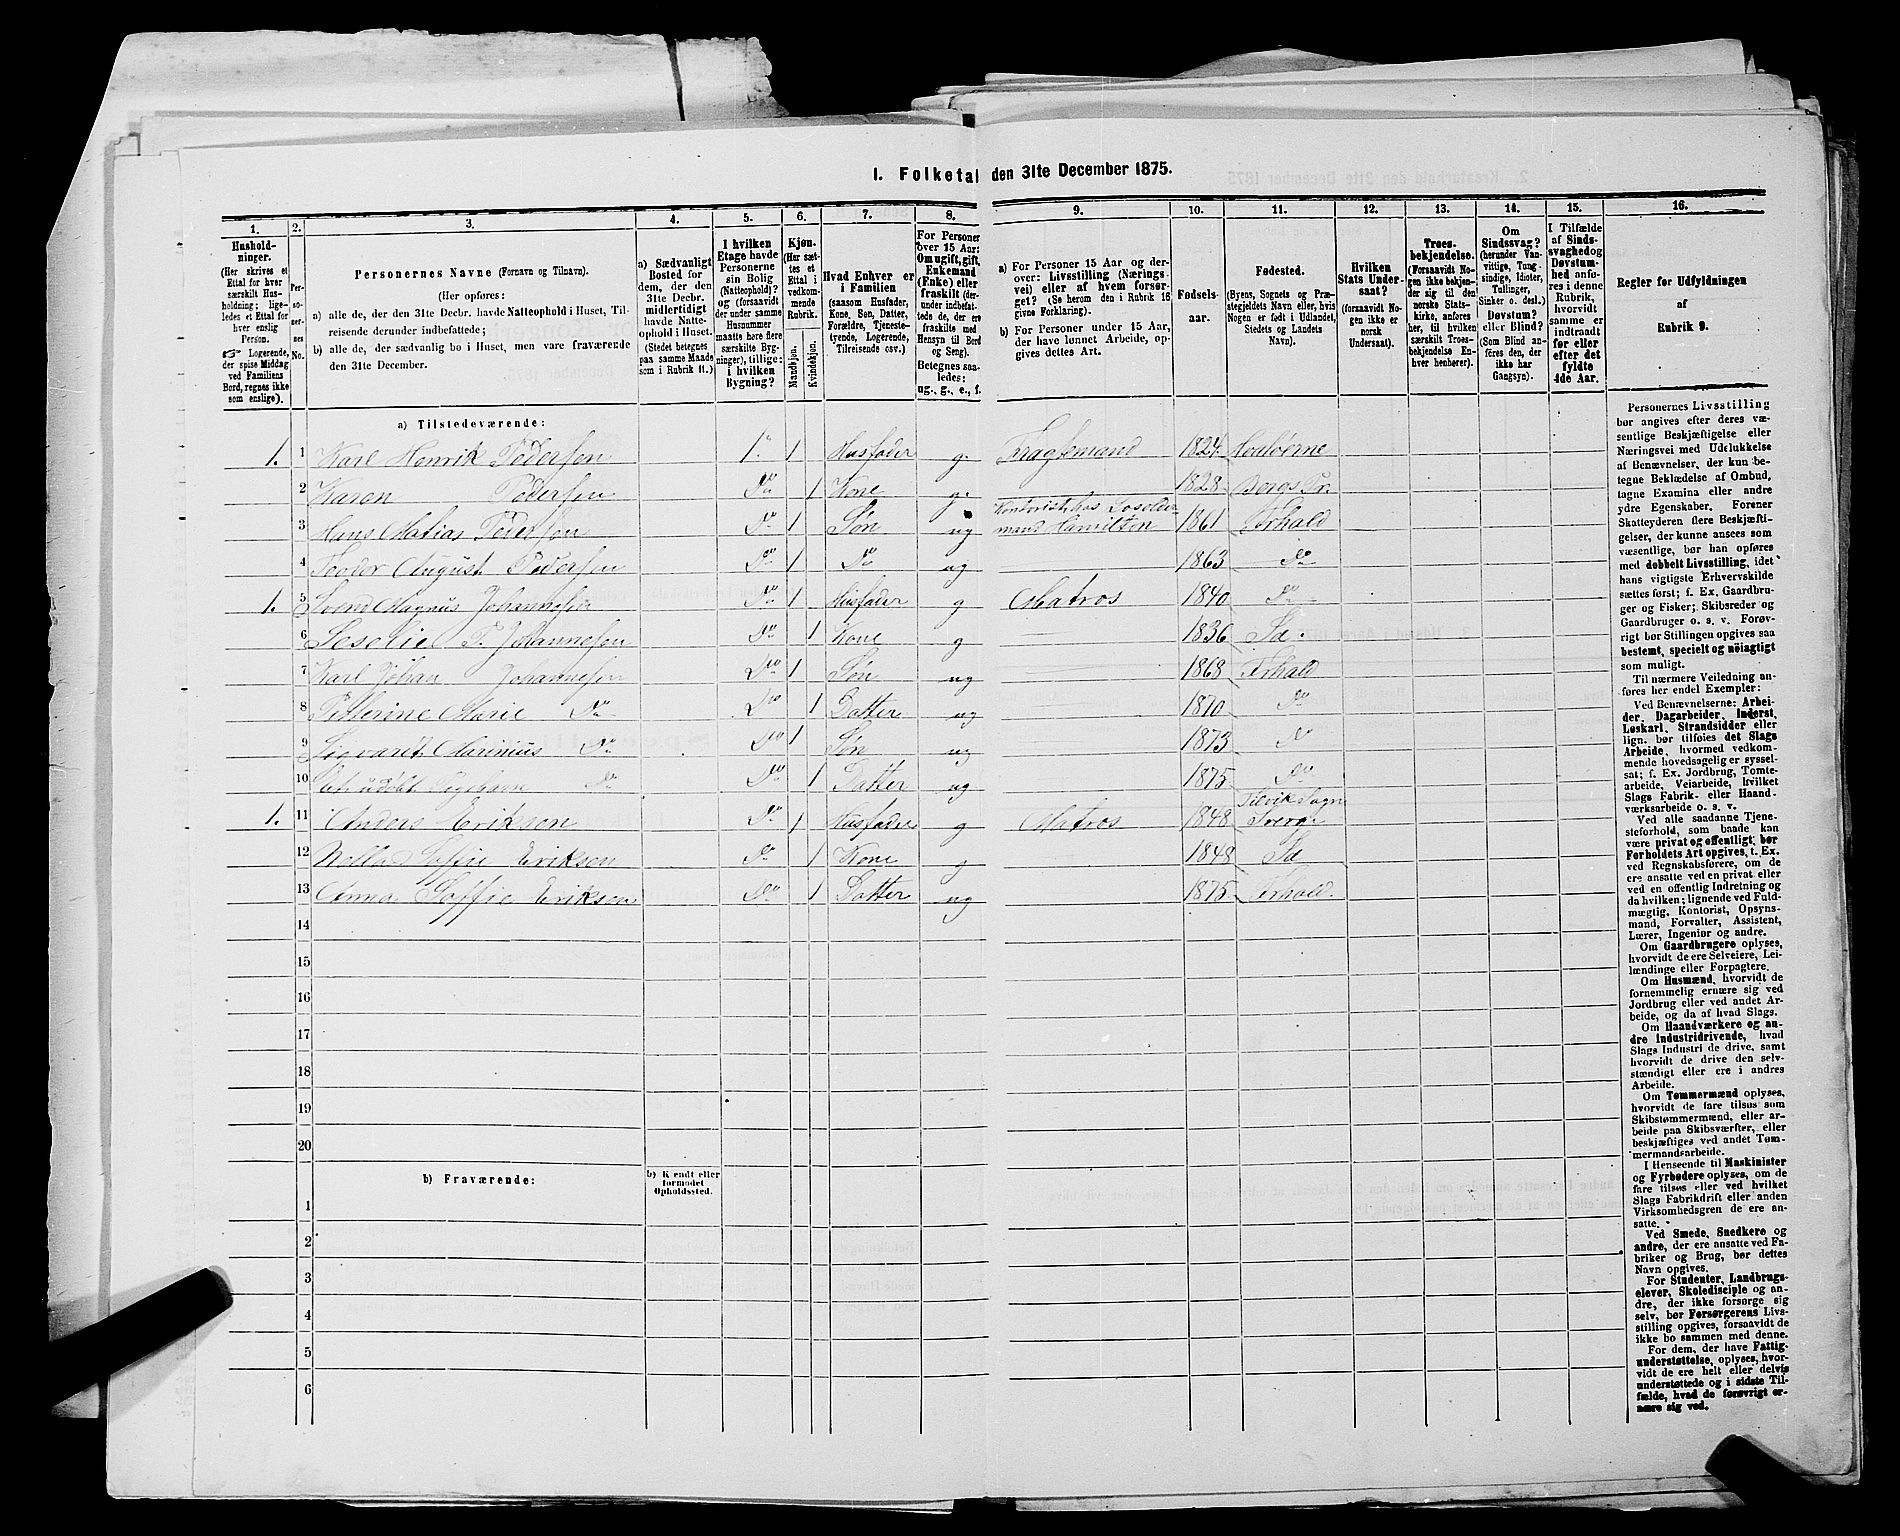 I. Folketal den 31te December 1875.
1.
Hushold-
ninger.
(Her skrives et
Ettal for hver
særskilt Hus-
holdning; lige-
ledes et Ettal for
hver enslig
Person.
☞ Logerende,
der spise Middag
ved Familiens
Bord, regnes ikke
som enslige).
2.
Per-
so-
ner-
nes
No.
3.
Personernes Navne (Fornavn og Tilnavn).
(Her opføres:
a) alle de, der den 31te Decbr. havde Natteophold i Huset, Til-
reisende derunder indbefattede;
b) alle de, der sædvanlig bo i Huset, men vare fraværende
den 31te December.
4.
a) Sædvanligt
Bosted for
dem, der den
31te Decbr.
midlertidigt
havde Natte-
ophold i Huset.
(Stedet betegnes
paa samme Maade
som i Rubrik 11.)
5.
I hvilken
Etage havde
Personerne
sin Bolig
(Natteophold)?
og (forsaavidt
der under samme
Husnummer
maatte høre flere
særskilte Byg-
ninger), tillige:
i hvilken
Bygning?
6.
Kjøn.
(Her sæt-
tes et
Ettal i
vedkom-
mende
Rubrik.
Mandkjøn.
Kvindekjøn.
7.
Hvad Enhver er
i Familien
(saasom Husfader,
Kone, Søn, Datter,
Forældre, Tjeneste-
tyende, Logerende,
Tilreisende osv.)
8.
For Personer
over 15 Aar:
Om ugift, gift,
Enkemand
(Enke) eller
fraskilt (der-
under indbefat-
tede de, der ere
fraskilte med
Hensyn til Bord
og Seng).
Betegnes saa-
ledes:
ug., g., e., f.
9.
a) For Personer 15 Aar og der-
over: Livsstilling (Nærings-
vei) eller af hvem forsør-
get? (Se herom den i Rubrik 16
givne Forklaring).
b) For Personer under 15 Aar,
der have lønnet Arbeide, op-
gives dettes Art.
10.
Fødsels-
aar.
11.
Fødested.
(Byens, Sognets og Præ-
stegjeldets Navn eller, hvis
Nogen er født i Udlandet,
Stedets og Landets
Navn).
12.
Hvilken
Stats Under-
saat?
(forsaavidt No-
gen ikke er
norsk
Undersaat).
13.
Troes-
bekjendelse.
(Forsaavidt No-
gen ikke bekjen-
der sig til den
norske Stats-
kirke, anføres
her, til hvilken
særskilt Troes-
bekjendelse En-
hver henhører).
14.
Om
Sindssvag?
(herunder Van-
vittige, Tung-
sindige, Idioter,
Tullinger,
Sinker o. desl.)
Døvstum?
eller Blind?
(Som Blind an-
føres den, der
ikke har
Gangsyn).
15.
I Tilfælde
af Sinds-
svaghed og
Døvstum-
hed anfø-
res i denne
Rubrik,
hvorvidt
samme er
indtraadt
før eller
efter det
fyldte
4de Aar.
16.
Regler for Udfyldningen
af
Rubrik 9.
a) Tilstedeværende:
1. 1 Karl Henrik Pedersen 1. 1 Husfader g. Fragtemand 1824 Hvaløerne
2 Karen Pedersen Do 1 Kone g. 1828 Bergs Pr.
3 Hans Matias Pedersen Do 1 Søn ug Kontorist hos mand Hamilton 1861 Frhald
4 Teodor August Pedersen Do 1 Do ug 1863 Do
1. 5 Svend Magnus Johannesen Do 1 Husfader g Matros 1840 Do
6 P. Johannesen Do 1 Kone g 1836 Sd.
7 Karl Johan Johannesen Do 1 Søn ug 1868 Frhald
8 Marie Do Do 1 Datter ug 1870 Do
9 Sigvart Marinius Do Do 1 Søn ug 1873 Do
10 Do Do 1 Datter ug 1875 Do
1. 11 Anders Eriksen Do 1 Husfader g Matros 1848 Sogn Sverge
12 Soffie Eriksen Do 1 Kone g 1848 Sd
13 Anna Soffie Eriksen Do 1 Datter ug 1875 Frhald.
14
15
16
17
18
19
20
b) Fraværende:
b) Kjendt eller
formodet
Opholdssted.
1
2
3
4
5
6
Personernes Livsstilling
bør angives efter deres væ-
sentlige Beskjæftigelse eller
Næringsvei med Udelukkelse
af Benævnelser, der kun be-
tegne Beklædelse af Ombud,
tagne Examina eller andre
ydre Egenskaber. Forener
Skatteyderen flere Beskjæfti-
gelser, der kunne ansees som
væsentlige, bør han opføres
med dobbelt Livsstilling, idet
hans vigtigste Erhvervskilde
sættes først; f. Ex. Gaardbru-
ger og Fisker; Skibsreder og
Gaardbruger o. s. v. Forøv-
rigt bør Stillingen opgives saa
bestemt, specielt og nöiagtigt
som muligt.
Til nærmere Veiledning an-
føres her endel Exempler:
Ved Benævnelserne: Arbei-
der, Dagarbeider, Inderst,
Løskarl, Strandsidder eller
lign. bør tilføies det Slags
Arbeide, hvormed vedkom-
mende hovedsagelig er syssel-
sat; f. Ex. Jordbrug, Tomte-
arbeide, Veiarbeide, hvilket
Slags Fabrik- eller Haand-
værksarbeide o. s. v.
Ved alle saadanne Tjene-
steforhold, som baade kan
være privat og offentligt, bør
Forholdets Art opgives, t. Ex.
ved Regnskabsførere, om de
ere ansatte ved en privat eller
ved en offentlig Indretning og
da hvilken; lignende ved Fuld-
mægtig, Kontorist, Opsyns-
mand, Forvalter, Assistent,
Lærer, Ingeniør og andre.
Om Gaardbrugere oplyses,
hvorvidt de ere Selveiere, Lei-
lændinge eller Forpagtere.
Om Husmænd, hvorvidt de
fornemmelig ernære sig ved
Jordbrug eller ved andet Ar-
beide, og da af hvad Slags.
Om Haandværkere og an-
dre Industridrivende, hvad
Slags Industri de drive, samt
hvorvidt de drive den selv-
stændigt eller ere i andres
Arbeide.
Om Tømmermænd oplyses,
hvorvidt de fare tilsøs som
Skibstømmermænd, eller ar-
beide paa Skibsværfter, eller
beskjæftiges ved andet Tøm-
mermandsarbeide.
I Henseende til Maskinister
og Fyrbødere oplyses, om de
fare tilsøs eller ved hvilket
Slags Fabrikdrift eller anden
Virksomhedsgren de ere an-
satte.
Ved Smede, Snedkere og
andre, der ere ansatte ved Fa-
briker og Brug, bør dettes
Navn opgives.
For Studenter, Landbrugs-
elever, Skoledisciple og an-
dre, der ikke forsørge sig
selv, bør Forsørgerens Livs-
stilling opgives, forsaavidt de
ikke bo sammen med denne.
For dem, der have Fattig-
understøttelse, oplyses, hvor-
vidt de ere helt eller delvis
understøttede og i sidste Til-
fælde, hvad de forøvrigt er-
nære sig ved.